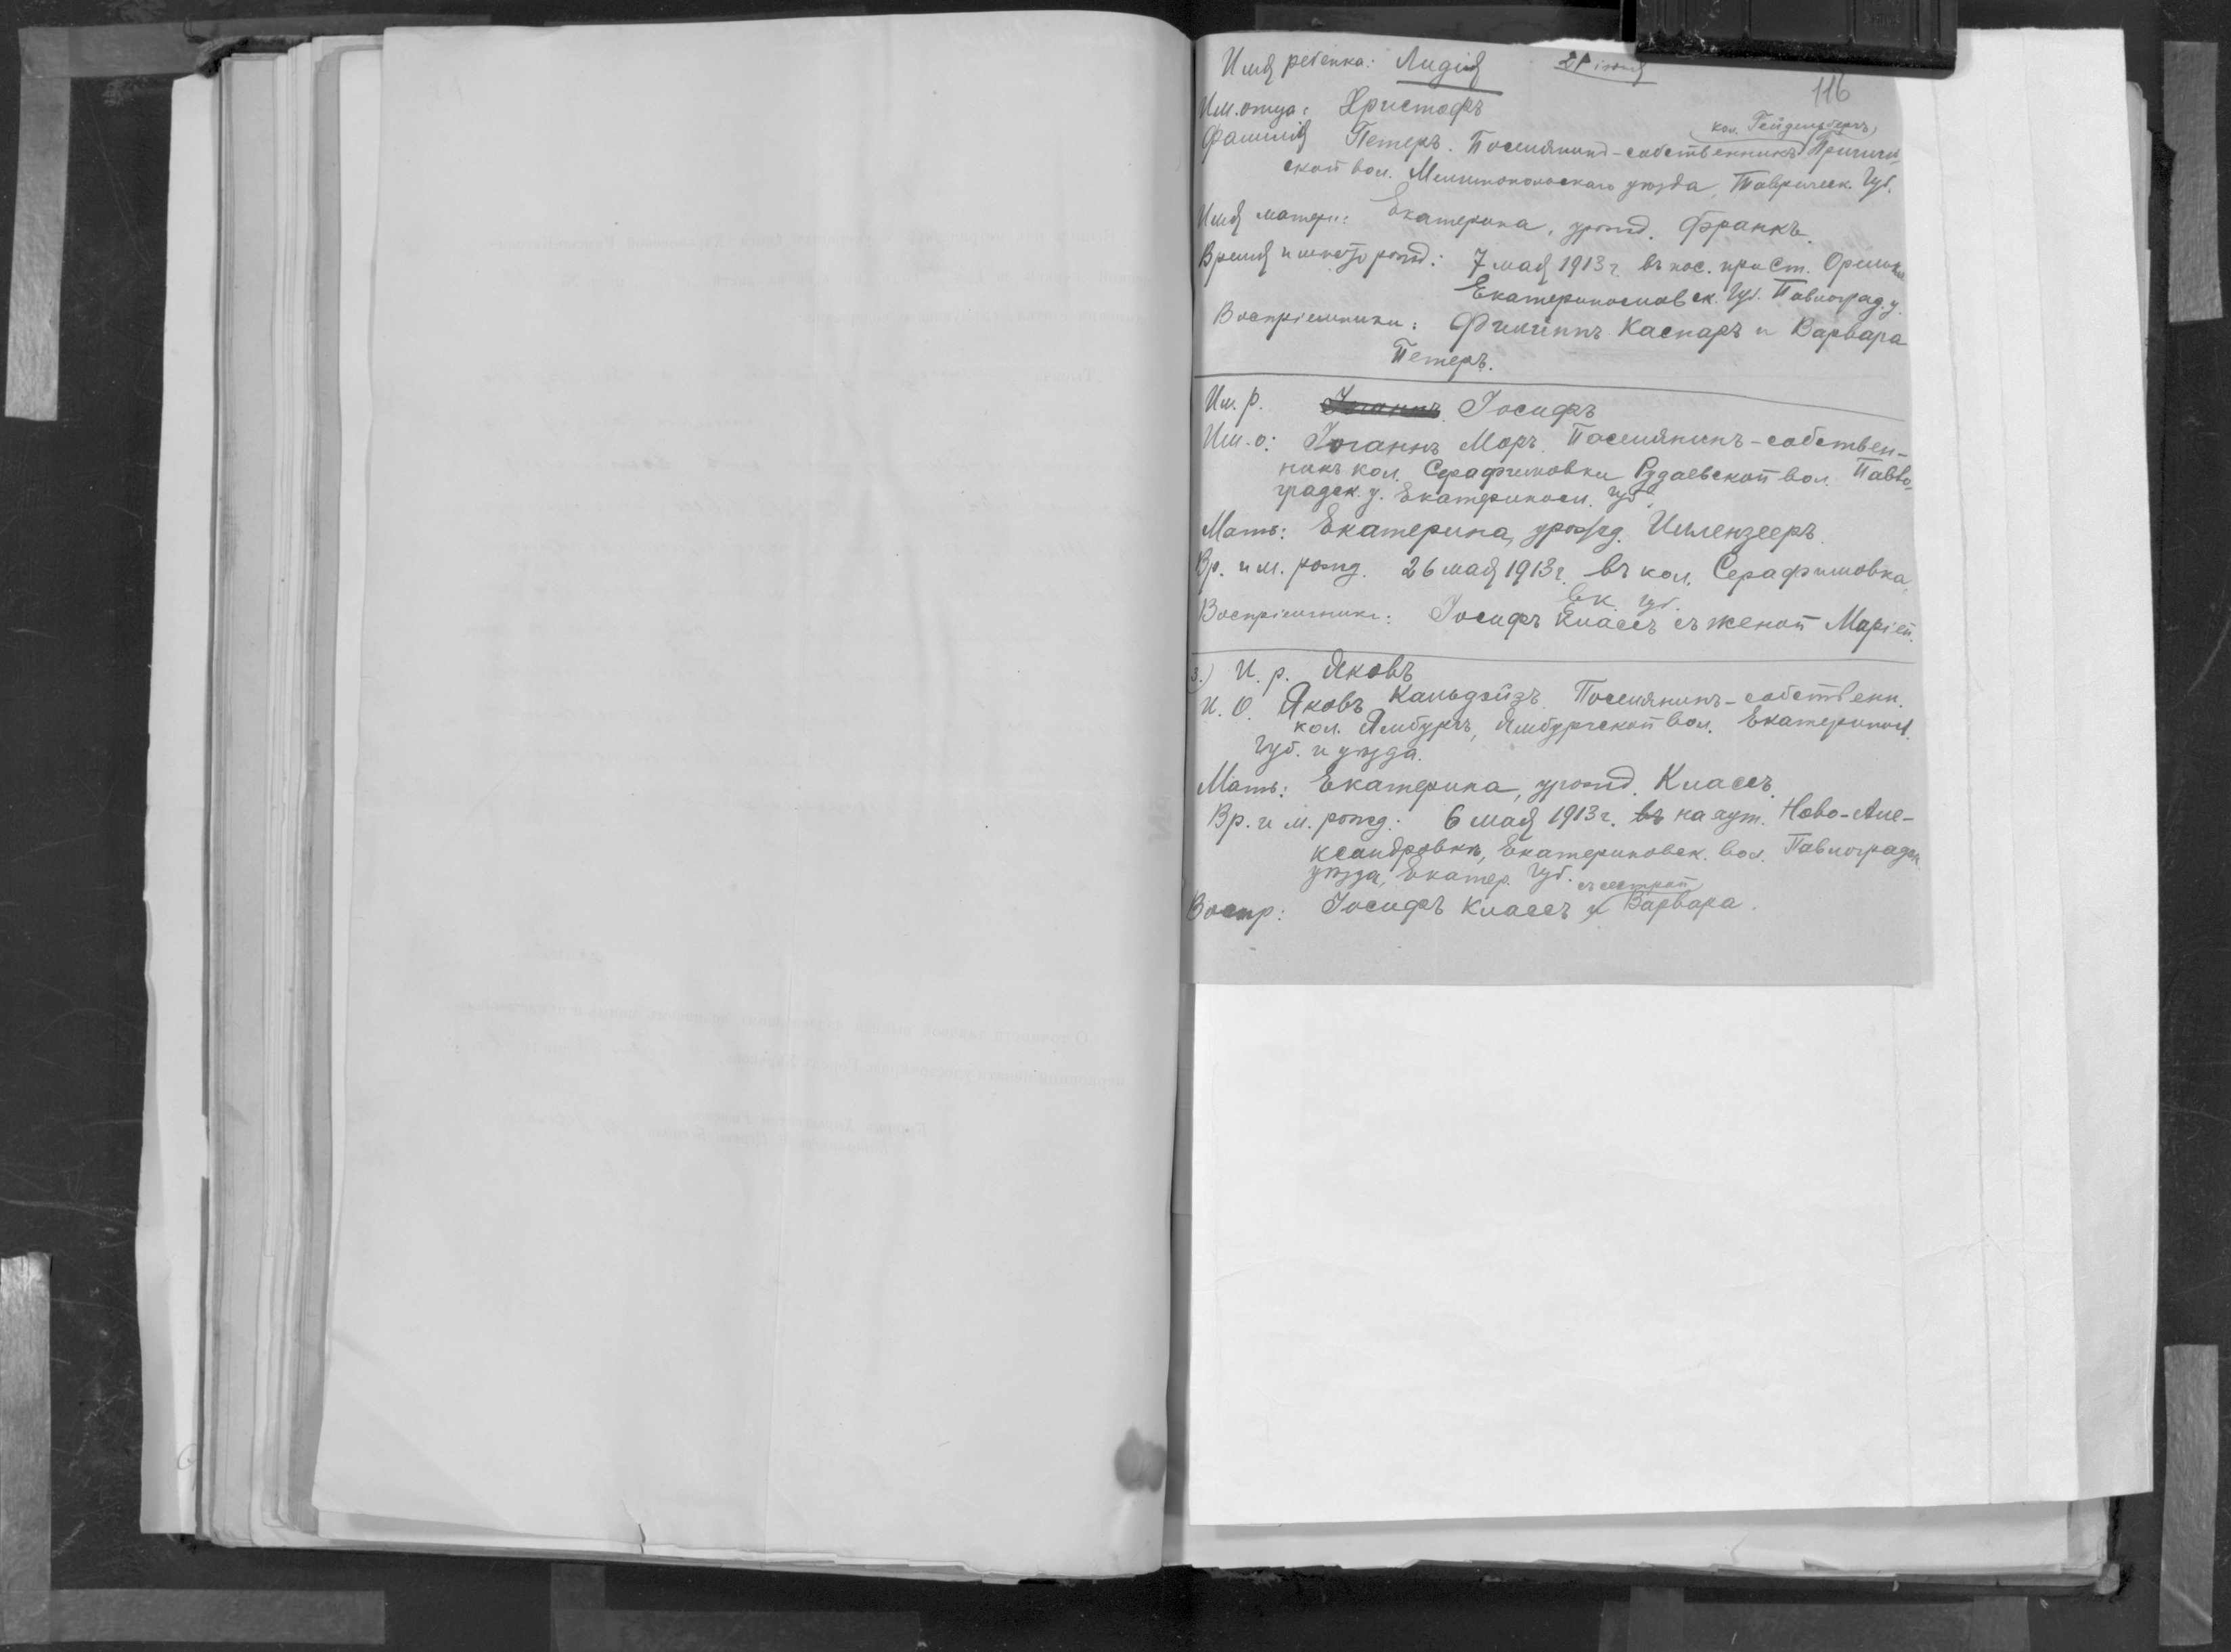 Имя ребенка: Лидія 21 іюня
116
Им. отца: Христофъ
кол. Гейдельбергъ,
Фамилія Петеръ. Поселянинъ-собственникъ Пришиб-
ской вол. Мелитопольскаго уѣзда, Таврическ. Губ.
Имя матери: Екатерина, урожд. Франкъ.
Время и мѣсто рожд: 7 мая 1913 г. въ пос. при Ст. Орелька
Екатеринославск. Губ. Павлоград. у.
Воспріемники: Филиппъ Каспаръ и Варвара
Петеръ.
Им. р. Іосифъ
Им. о: Іоганнъ Моръ. Поселянинъ-собствен-
никъ кол. Серафимовки Рудаевской вол. Павло-
градск. у. Екатеринosл. губ.
Мать: Екатерина, урожд. Имлензееръ.
Вр. и м. рожд. 26 мая 1913 г. въ кол. Серафимовка,
Ек. губ.
Воспріемники: Іосифъ Классъ съ женой Маріей.
3.) И. р. Яковъ
И. О. Яковъ Кальдэйзъ Поселянинъ-собственн.
кол. Ямбургъ, Ямбургской вол. Екатеринosл.
Губ. и уѣзда.
Мать: Екатерина, урожд. Классъ.
Вр. и м. рожд: 6 мая 1913 г. въ на хут. Ново-Але-
ксандровкѣ, Екатериновск. вол. Павлоградск.
уѣзда, Екатер. Губ.
съ сестрой
Воспр: Іосифъ Классъ и Варвара.